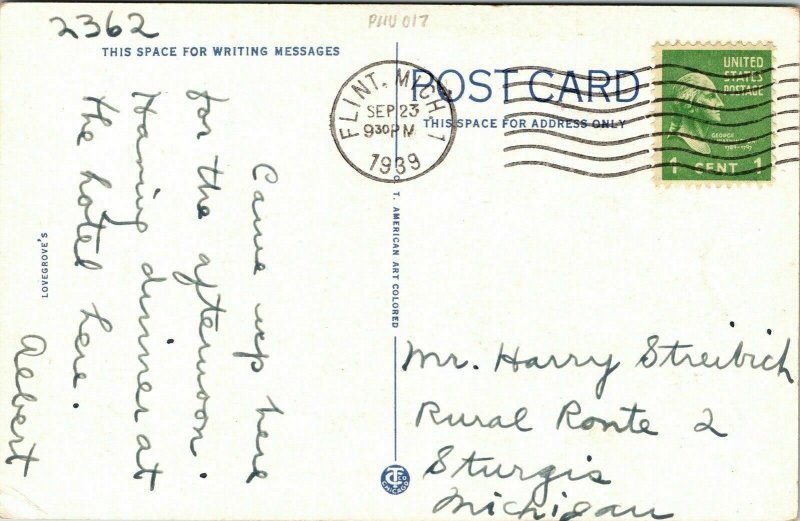 2362
PHU 017
THIS SPACE FOR WRITING MESSAGES
POST CARD
THIS SPACE FOR ADDRESS ONLY
FLINT, MICH. 1
SEP 23
9 30 PM
1939
UNITED
STATES
POSTAGE
GEORGE
1 CENT 1
Came up here
for the afternoon.
Having dinner at
the hotel here.
Aebert
LOVEGROVE'S
C. T. AMERICAN ART COLORED
Mr. Harry Streibich
Rural Route 2
Sturgis
Michigan
CHICAGO